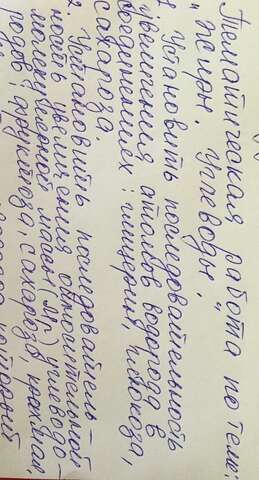 Тематическая работа по теме:
"Жиры. Углеводы."
1 Установить последовательность
увеличения атомов водорода в
соединениях: глицерин, глюкоза,
сахароза.
2. Установить последователь-
ность увеличения относительной
молекулярной массы (Mr) углеводо-
родов: фруктоза, сахароза, крахмал.
который